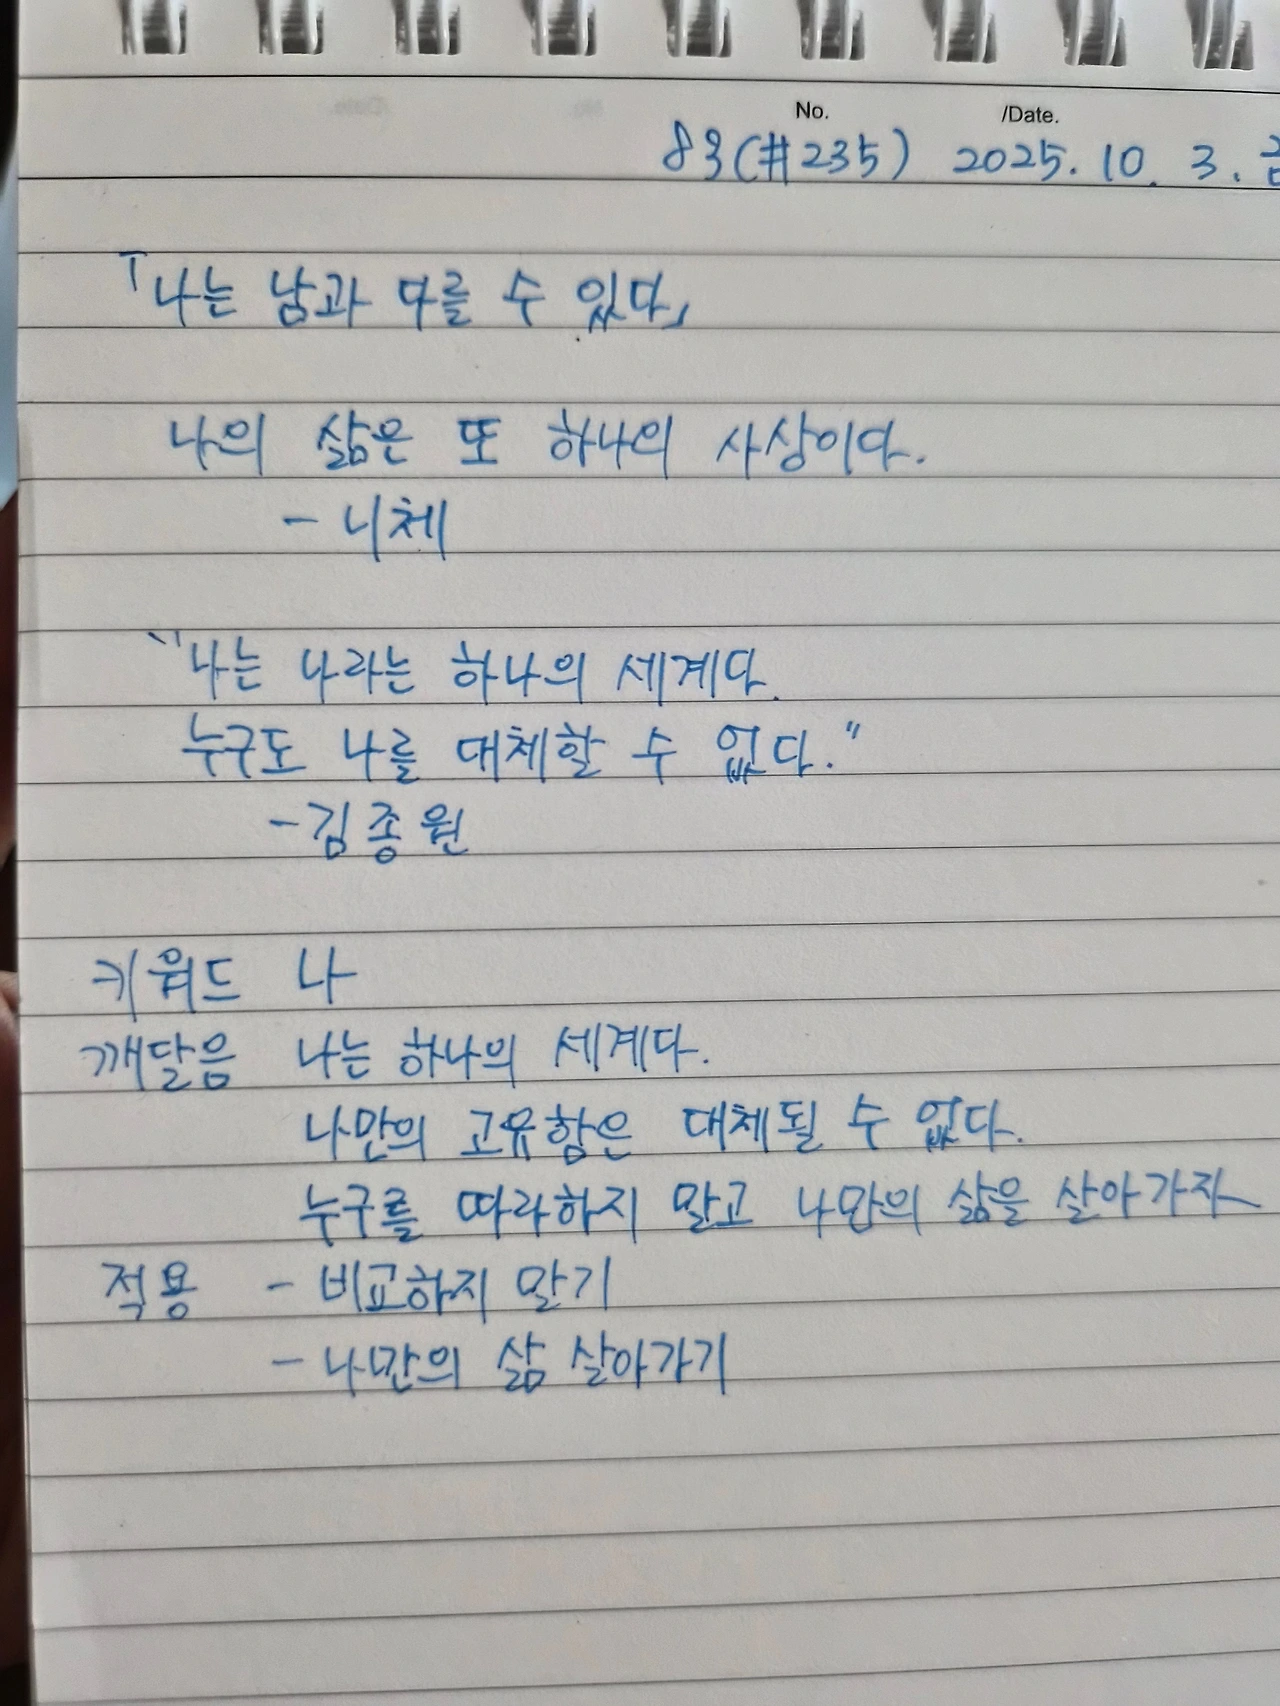 No. /Date.
(#235) 2025. 10. 3. 금
「나는 남과 다를 수 있다」
나의 삶은 또 하나의 사상이다.
- 니체
"나는 나라는 하나의 세계다.
누구도 나를 대체할 수 없다."
- 김종원
키워드 나
깨달음 나는 하나의 세계다.
나만의 고유함은 대체될 수 없다.
누구를 따라하지 말고 나만의 삶을 살아가자
적용 - 비교하지 말기
- 나만의 삶 살아가기